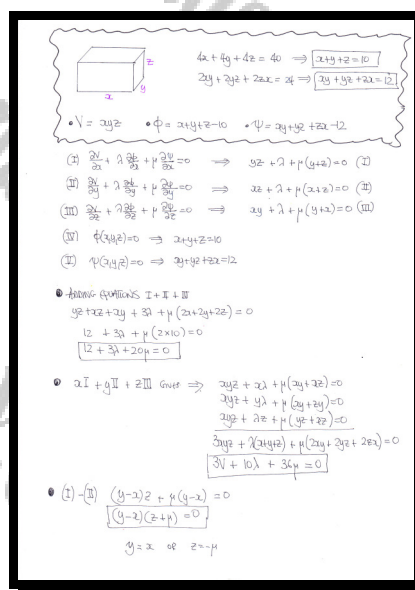 4x + 4y + 4z = 40 ⇒ x+y+z=10
2xy + 2yz + 2zx = 24 ⇒ xy + yz + zx = 12
z
y
x
• V = xyz • ϕ = x+y+z-10 • ψ = xy+yz+zx-12
(I) ∂V/∂x + λ ∂ϕ/∂x + μ ∂ψ/∂x = 0 ⇒ yz + λ + μ(y+z) = 0 (I)
(II) ∂V/∂y + λ ∂ϕ/∂y + μ ∂ψ/∂y = 0 ⇒ xz + λ + μ(x+z) = 0 (II)
(III) ∂V/∂z + λ ∂ϕ/∂z + μ ∂ψ/∂z = 0 ⇒ xy + λ + μ(y+x) = 0 (III)
(IV) ϕ(x,y,z)=0 ⇒ x+y+z=10
(V) ψ(x,y,z)=0 ⇒ xy+yz+zx=12
• ADDING EQUATIONS I + II + III
yz + xz + xy + 3λ + μ(2x+2y+2z) = 0
12 + 3λ + μ(2×10) = 0
12 + 3λ + 20μ = 0
• xI + yII + zIII GIVES ⇒ xyz + xλ + μ(xy+xz)=0
xyz + yλ + μ(xy+zy)=0
xyz + λz + μ(yz+xz)=0
3xyz + λ(x+y+z) + μ(2xy+2yz+2zx)=0
3V + 10λ + 36μ = 0
• (I)-(II) (y-x)z + μ(y-x) = 0
(y-x)(z+μ) = 0
y = x OR z = -μ